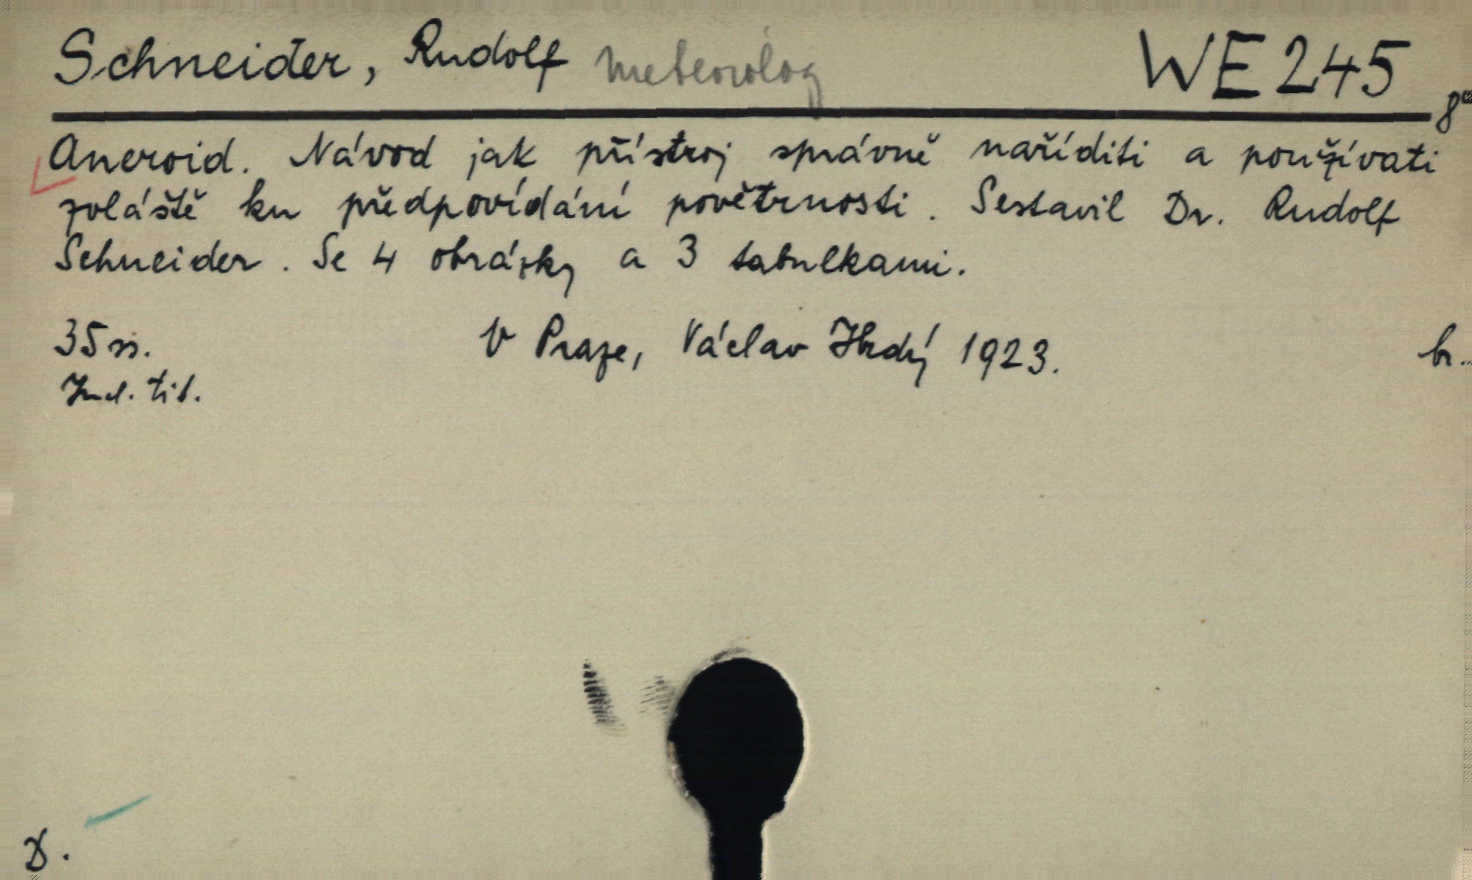 Schneider, Rudolf meteorolog WE 245
8°
Aneroid. Návod jak přístroj správně naříditi a používati
zvláště ku předpovídání povětrnosti. Sestavil Dr. Rudolf
Schneider. Se 4 obrázky a 3 tabulkami.
35 ss. V Praze, Václav Hrdý 1923. br.
tit.
D.